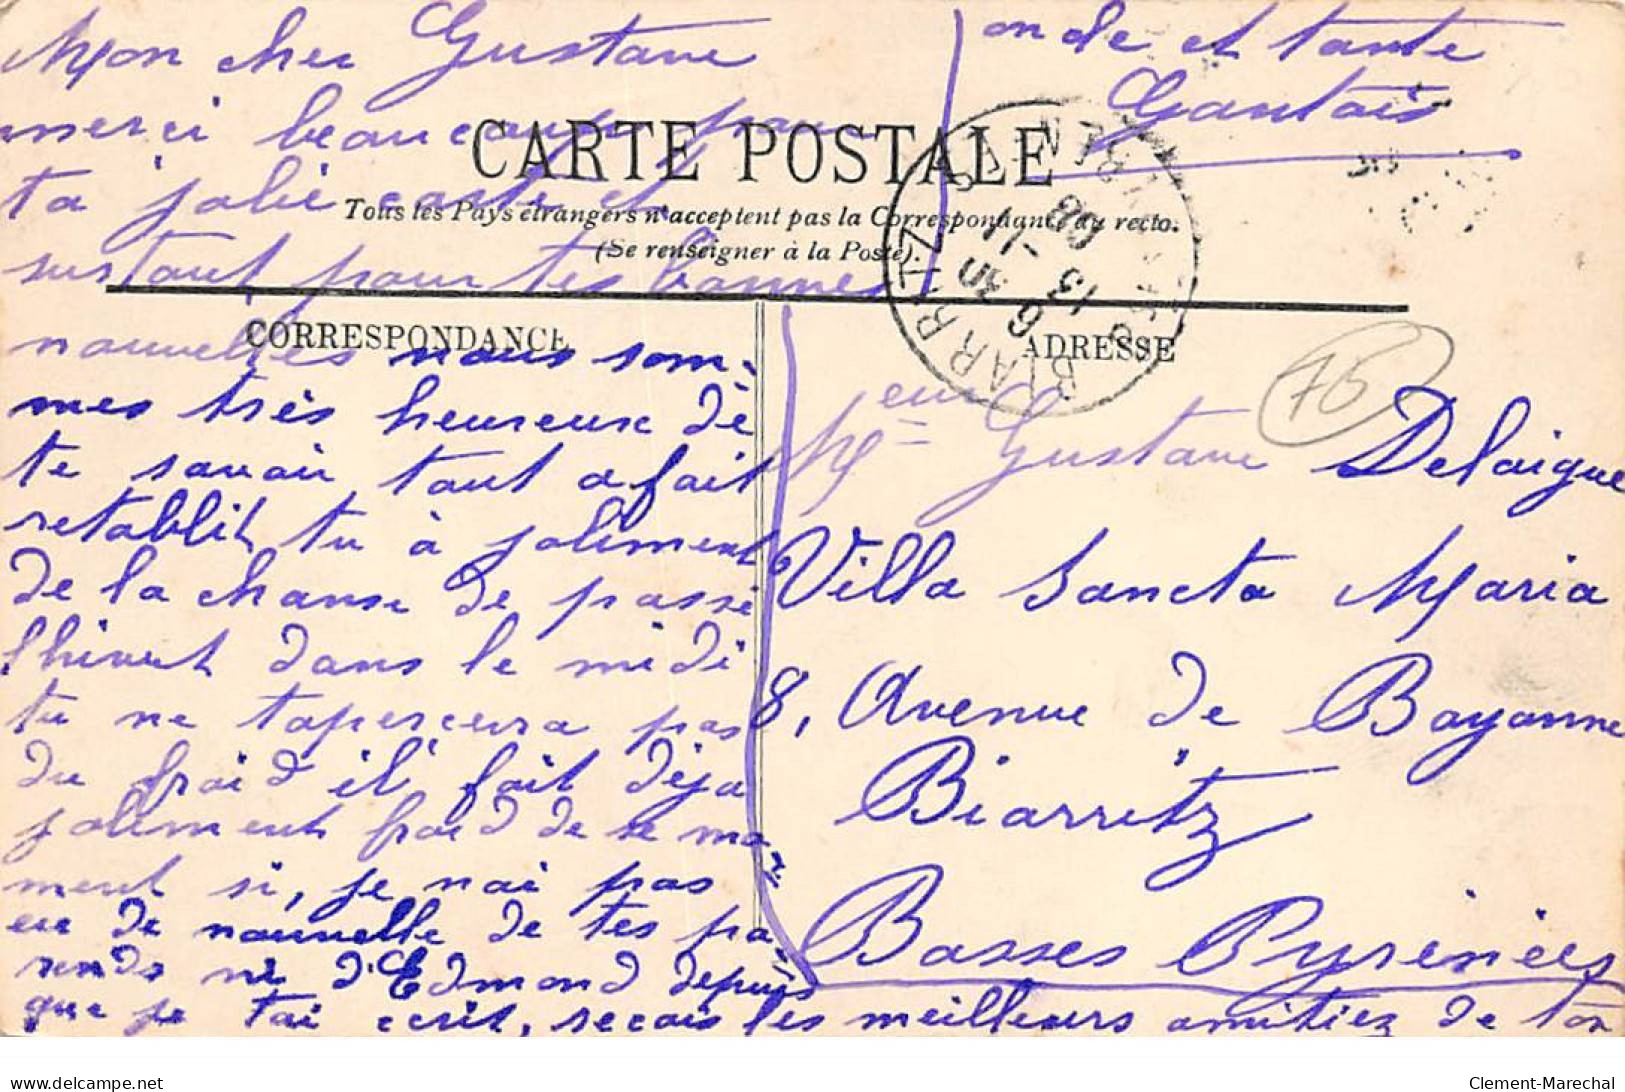 Mon cher Gustave
merci beaucoup pour
ta jolie carte et
surtout pour tes bonnes
nouvelles nous som-
mes très heureux de
te savoir tout a fait
retablit tu à joliment
de la chanse de passé
lhivert dans le midi
tu ne tapercevra pas
du froid il fait déja
joliment froid de se mo-
ment si, je nai pas
eue de nouvelle de tes pa-
rends ni d'Edmond depuis
que je tai ecrit, recois les meilleurs amitiez de ton
oncle et tante
Gautais
CARTE POSTALE
Tous les Pays étrangers n'acceptent pas la Correspondance au recto.
(Se renseigner à la Poste).
CORRESPONDANCE
ADRESSE
BIARRITZ
6 30
13 -1
08
75
Meur Gustave Delaigue
Villa Sancta Maria
8, Avenue de Bayonne
Biarritz
Basses Pyrénées
delcampe.net
Clement-Marechal